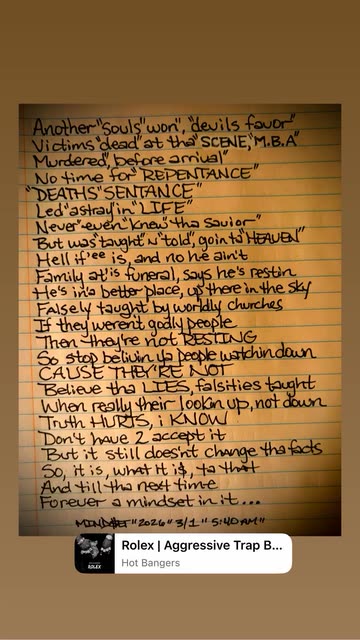 Another "souls" won", "devils favor"
Victims "dead" at tha "SCENE," "M.B.A"
Murdered", before arrival"
No time for "REPENTANCE"
"DEATHS" SENTANCE"
Led "astray" in "LIFE"
Never "even" knew "tha savior"
But was "taught" n "told", goin to "HEAVEN"
Hell if'ee is, and no he ain't
Family at'is funeral, says he's restin
He's in'a better place, up there in the sky
Falsely taught by worldly churches
If they weren't godly people
Then they're not RESTING
So stop believin up people watchin down
CAUSE THEY'RE NOT
Believe tha LIES, falsities taught
When really their lookin up, not down
Truth HURTS, i KNOW
Don't have 2 accept it
But it still doesn't change tha facts
So, it is, what it is, ta that
And till tha next time
Forever a mindset in it...
MINDSET "2026" 3/1 "5:40 AM"
Rolex | Aggressive Trap B...
Hot Bangers
ROLEX